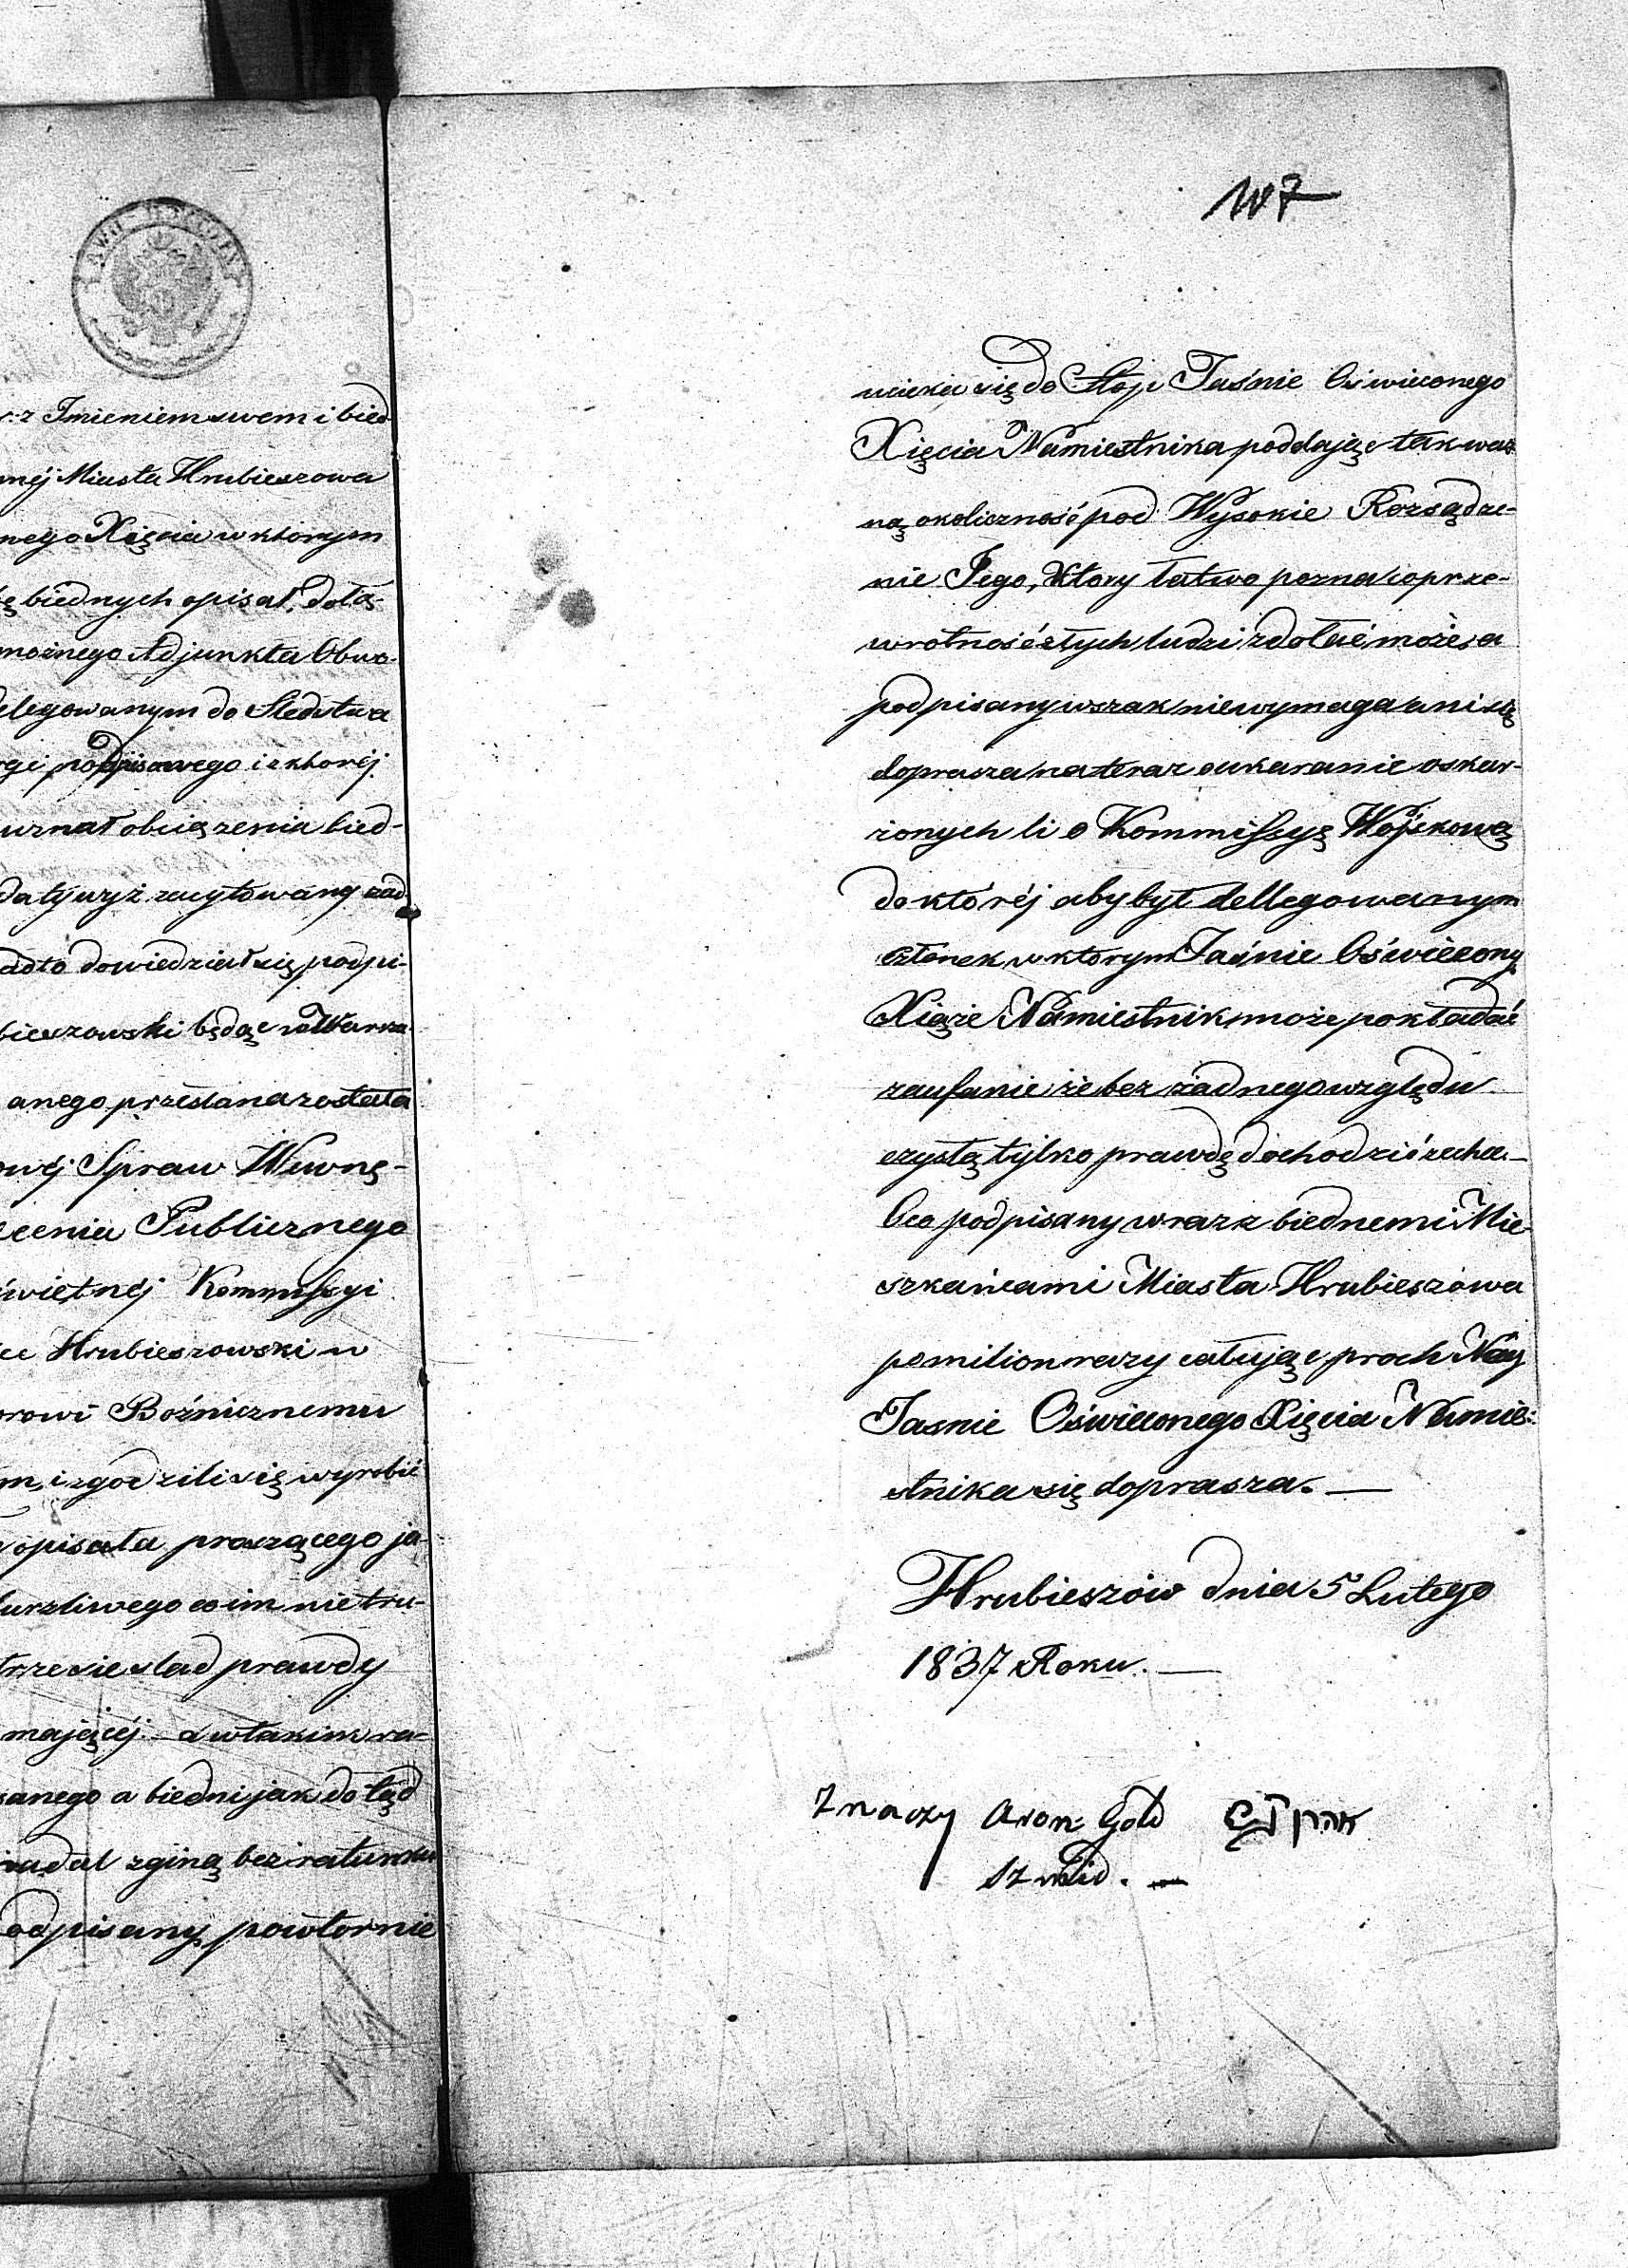 r: z Imieniem swem i bied
nnéj Miasta Hrubieszowa
nego Xięcia w którym
ę biednych opisał, dołą-
możnego Adjunkta Obwo-
elegowanym do Śledstwa
rgi podpisanego i z któréj
uznał obciążenia bied-
da tj wyż zacytowany
adto dowiedział się podpi-
bieszowski będąc w Warsza-
anego przesłana została
owéj Spraw Wewnę-
ecenia Publicznego
świetnéj Kommissyi
Hrubieszowski w
orowi Bożnicznemu
m, i zgodzili się wyrobić
opisała proszącego ja-
burzliwego co im nie tru-
trze się ślad prawdy
mającéj. – a w takim ra-
sanego a biedni jak dotąd
nadal zginą bez ratunku
odpisany powtornie
107
ucieka się do Stop Jaśnie Oświeconego
Xięcia Namiestnika poddając tak waż
ną okoliczność pod Wysokie Rozsądze-
nie Jego, Który łatwo pozna co prze-
wrotność złych ludzi zdołać może, a
podpisany wszak niewymaga ani się
doprasza na teraz o ukaranie oskar-
żonych li o Kommissyę Wojskową
do któréj aby był dellegowanym
członek w którym Jaśnie Oświecony
Xiąże Namiestnik może pokładać
zaufanie że bez żadnego względu
czystą tylko prawdę dochodzić zechce. —
O co podpisany wraz z biednemi Mie-
szkańcami Miasta Hrubieszowa
po milion razy całując proch Nay
Jasnie Oświeconego Xięcia Namie-
stnika się doprasza. —
Hrubieszów dnia 5 Lutego
1837 Roku. —
Znaczy Aron Gold אהרן
Szmid. —